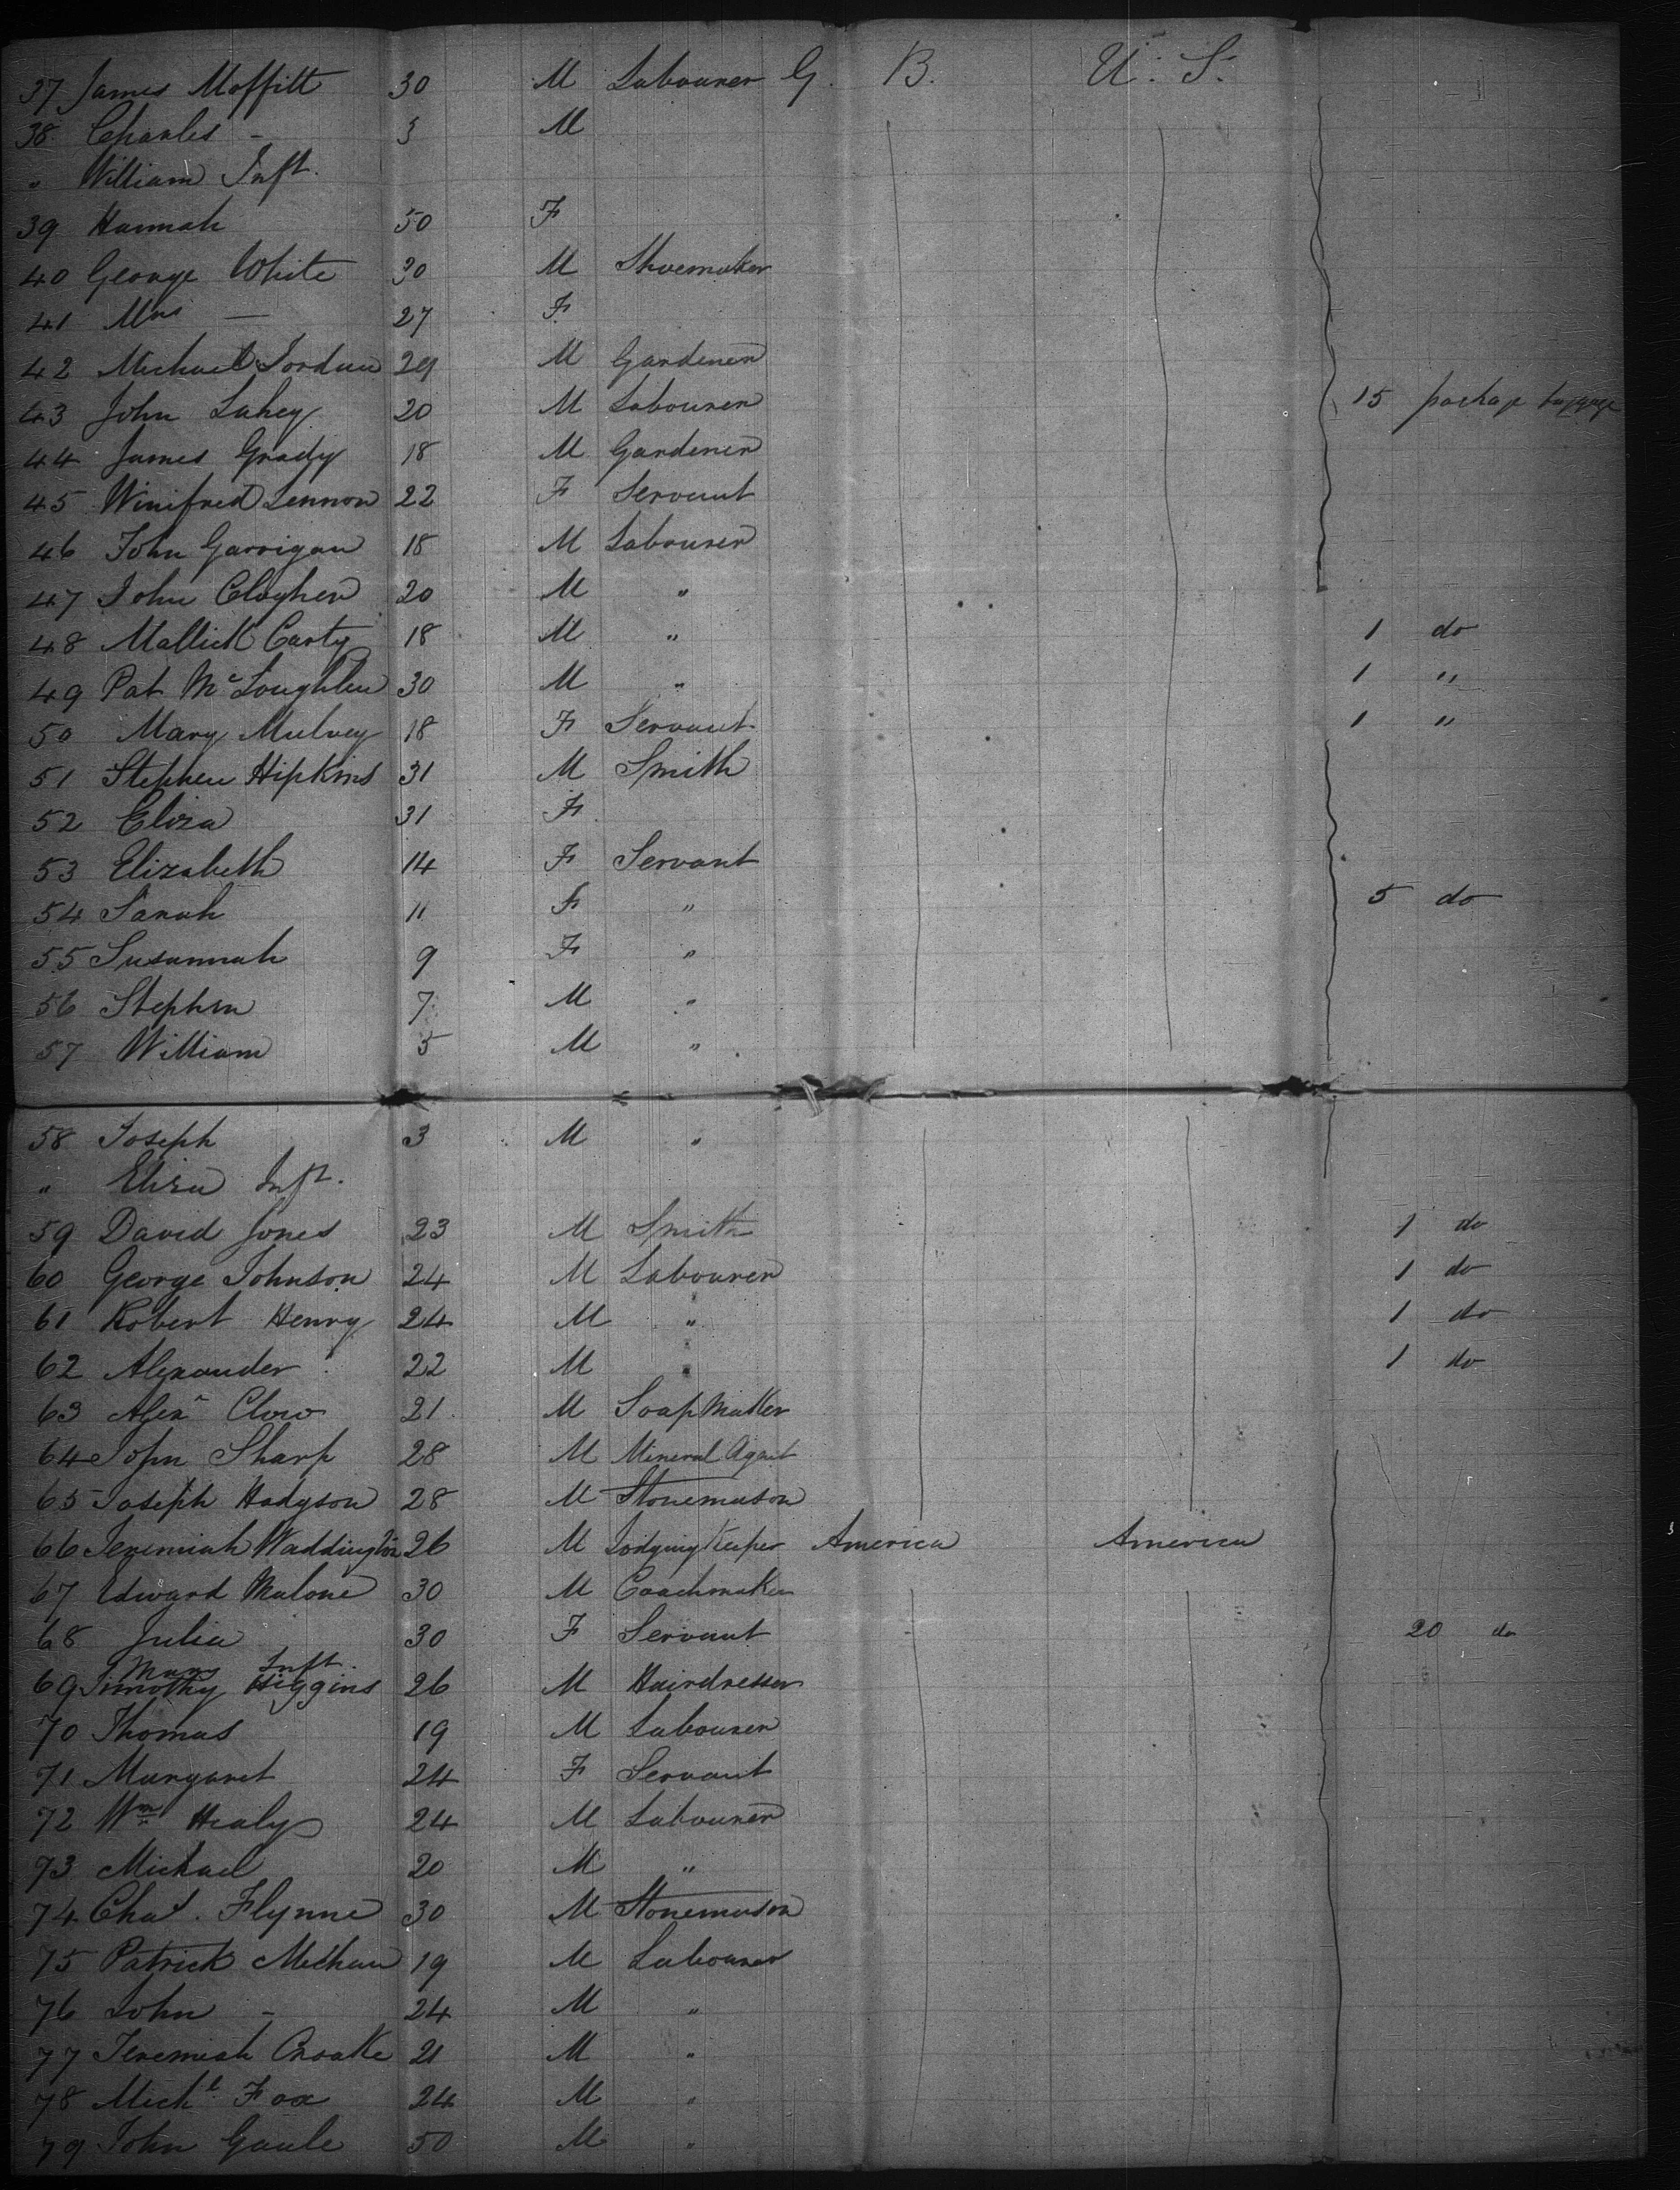 37 James Moffitt 30 M Labourer G. B. U. S.
38 Charles - 3 M
" William Inft.
39 Hannah 50 F
40 George White 30 M Shoemaker
41 Mrs — 27 F
42 Michael Jordan 29 M Gardener
43 John Lahey 20 M Labourer 15 luggage
44 James Grady 18 M Gardener
45 Winifred Lennon 22 F Servant
46 John Garrigan 18 M Labourer
47 John Clogher 20 M "
48 Carty 18 M " 1 do
49 Pat McLoughlin 30 M " 1 "
50 Mary Mulvey 18 F Servant 1 "
51 Stephen Hipkins 31 M Smith
52 Eliza 31 F
53 Elizabeth 14 F Servant
54 Sarah 11 F " 5 do
55 Susannah 9 F "
56 Stephen 7 M "
57 William 5 M "
58 Joseph 3 M "
" Eliza Inft.
59 David Jones 23 M Smith 1 do
60 George Johnson 24 M Labourer 1 do
61 Robert Henry 24 M " 1 do
62 Alexander 22 M " 1 do
63 Alexr Clow 21 M Soapmaker
64 John Sharp 28 M Mineral Agent
65 Joseph Hodgson 28 M Stonemason
66 Jeremiah Waddington 26 M Lodging Keeper America America
67 Edward Malone 30 M Coachmaker
68 Julia 30 F Servant 20 do
" Mary Inft.
69 Timothy Higgins 26 M Hairdresser
70 Thomas 19 M Labourer
71 Margaret 24 F Servant
72 Wm Healy 24 M Labourer
73 Michael 20 M "
74 Chas. Flynne 30 M Stonemason
75 Patrick Meehan 19 M Labourer
76 John - 24 M "
77 Jeremiah Croake 21 M "
78 Michl Fox 24 M "
79 John Gaule 50 M "